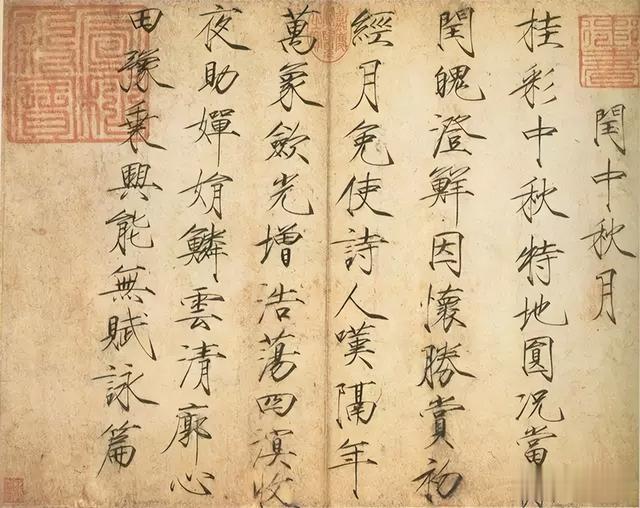 閏中秋月
桂彩中秋特地圓況當
閏魄澄鮮因懷勝賞初
經月免使詩人嘆隔年
萬象斂光增浩蕩四溟收
夜助嬋娟鱗雲清廓心
田豫乘興能無賦詠篇
御書